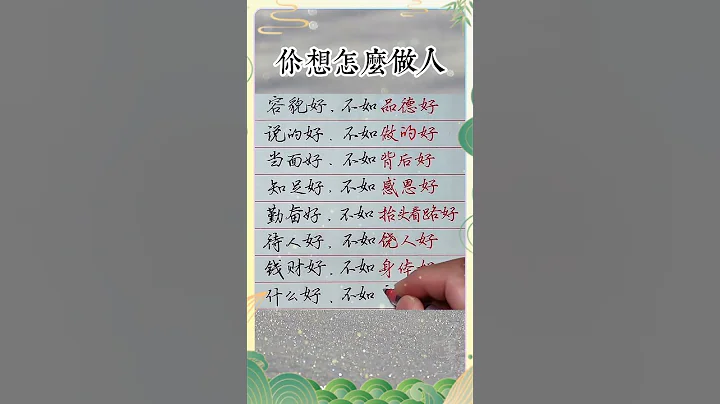 你想怎麼做人
容貌好．不如品德好
说的好．不如做的好
当面好．不如背后好
知足好．不如感恩好
勤奋好．不如抬头看路好
待人好．不如饶人好
钱财好．不如身体好
什么好．不如